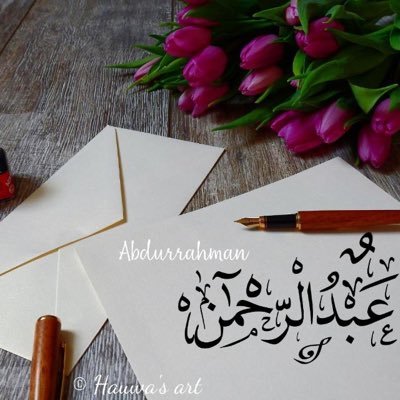 Abdurrahman
عَبْدُالرَّحْمٰن
© Hauwa's art